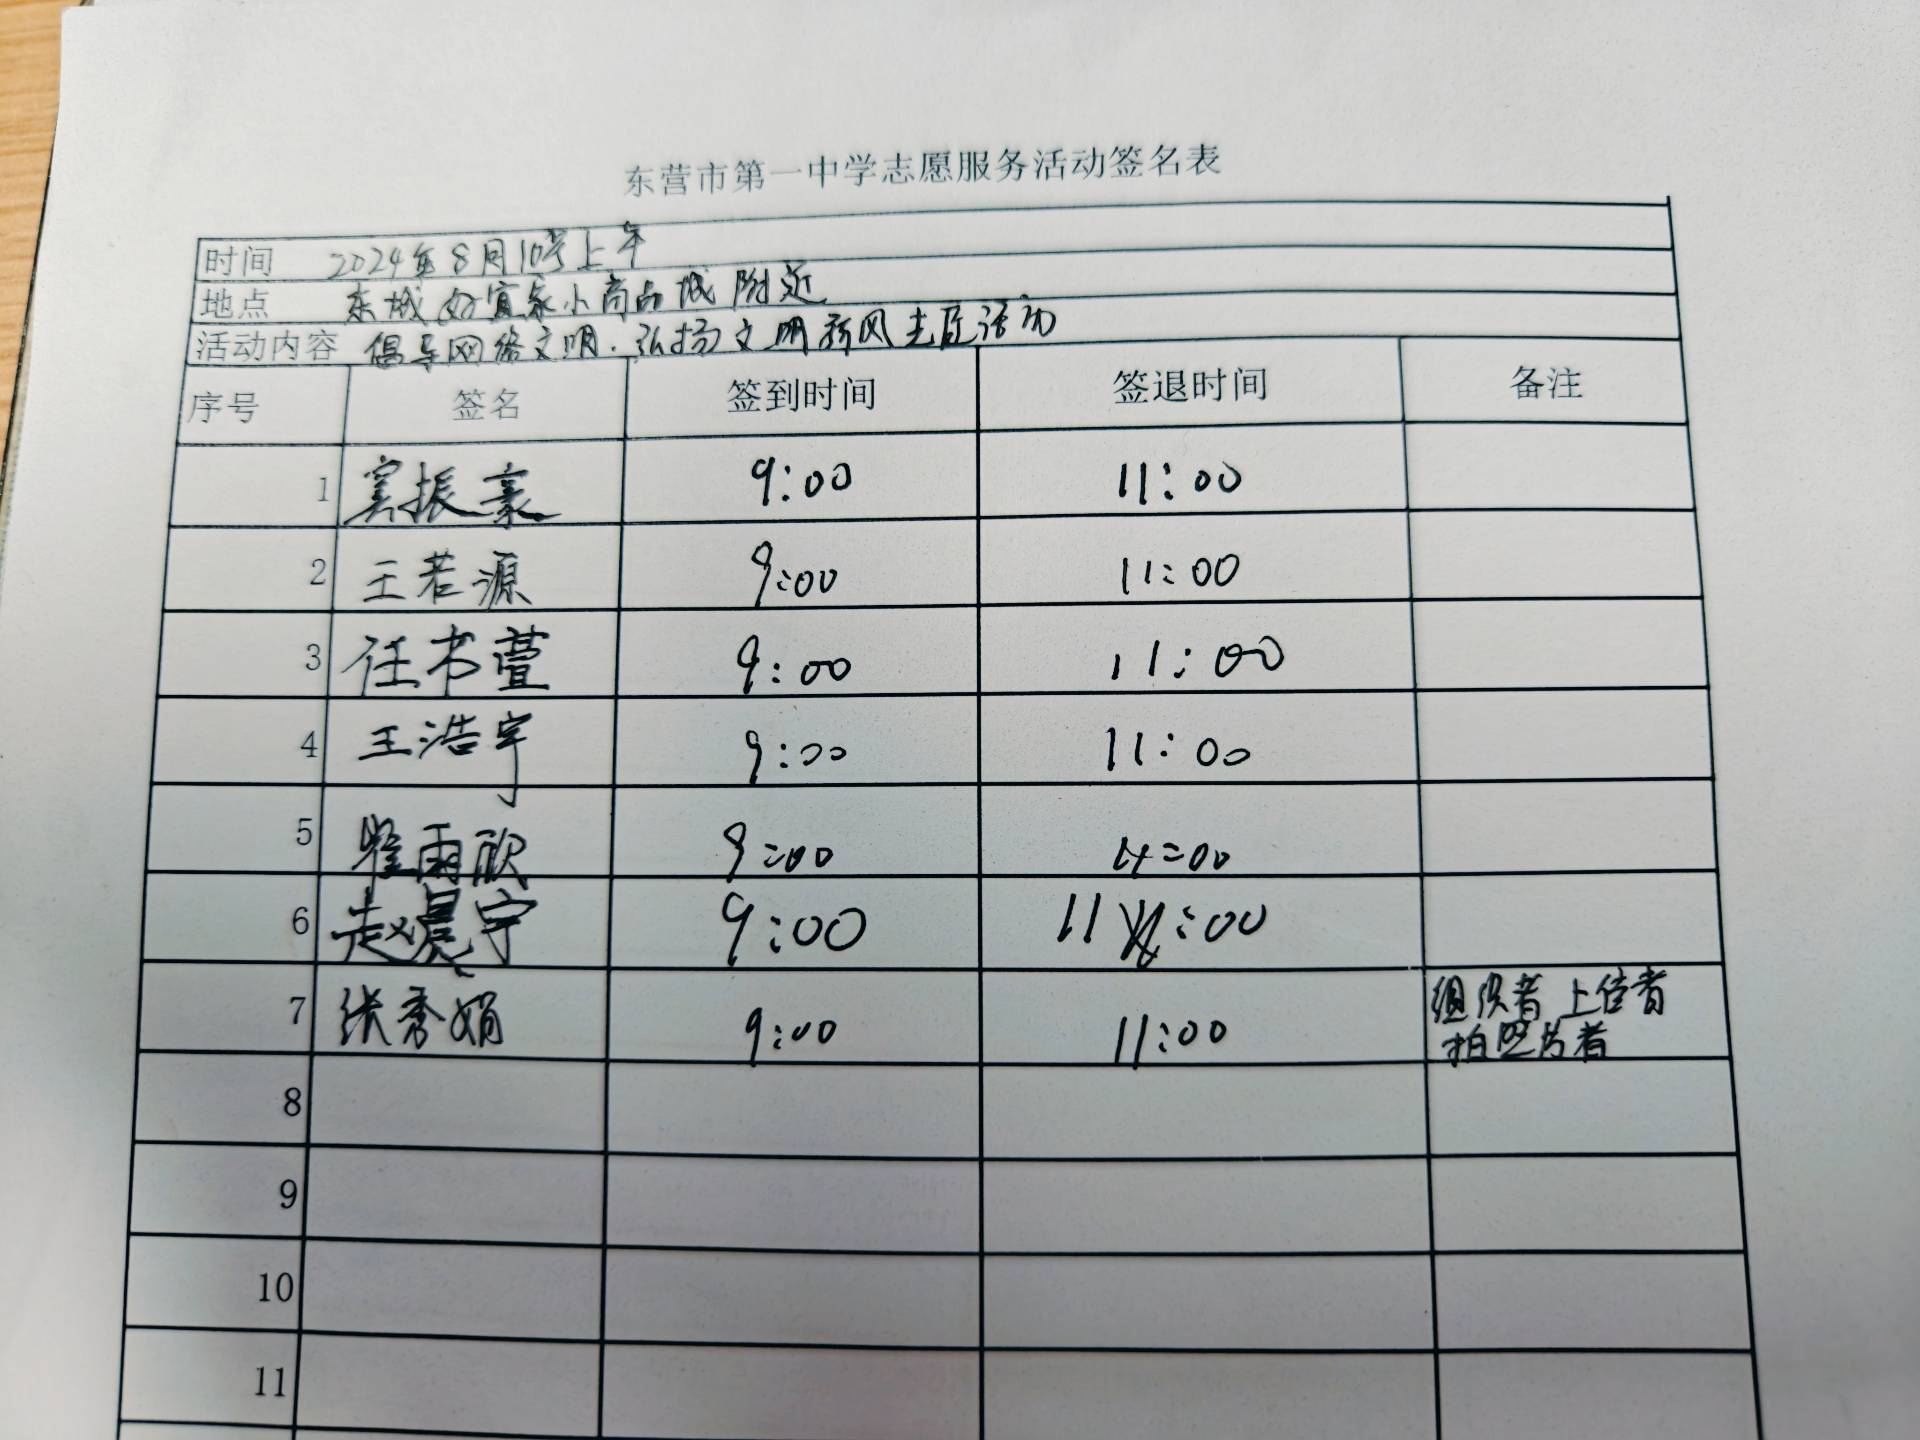 东营市第一中学志愿服务活动签名表
时间 2024年8月10号上午
地点 东城好宜家小商品城附近
活动内容 倡导网络文明.弘扬文明新风志愿活动
序号 签名 签到时间 签退时间 备注
1 窦振豪 9:00 11:00
2 王若源 9:00 11:00
3 任书萱 9:00 11:00
4 王浩宇 9:00 11:00
5 雨欣 9:00 :00
6 赵晨宇 9:00 11:00
7 张秀娟 9:00 11:00 组织者 上传者
拍照片者
8
9
10
11